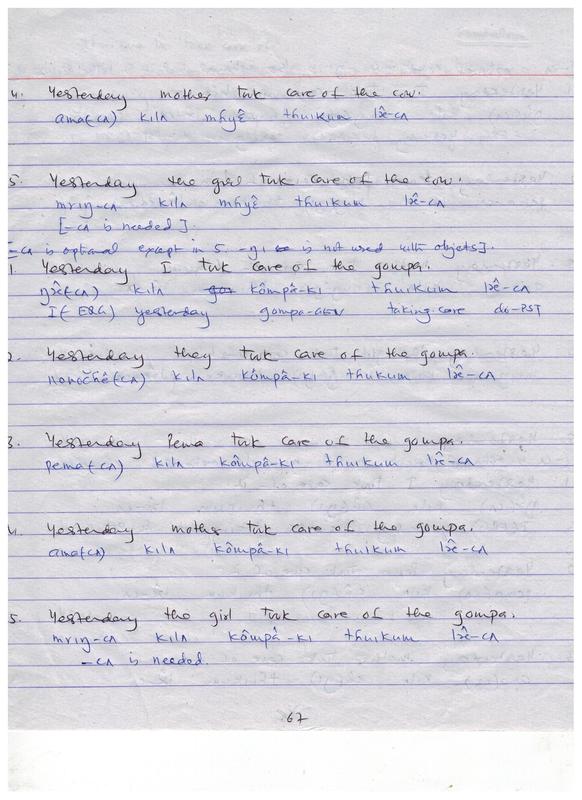 4. Yesterday mother tuk care of the cow.
ama(-cʌ) kilʌ mhyɛ̂ thuikum lɔ̂-cʌ
5. Yesterday the girl tuk care of the cow.
mriŋ-cʌ kilʌ mhyɛ̂ thuikum lɔ̂-cʌ
[-cʌ is needed].
[-cʌ is optional except in 5. -gi is not used with objects].
1. Yesterday I tuk care of the gompa.
kilʌ kômpâ-ki thuikum lɔ̂-cʌ
I(-ERG) yesterday gompa-GEN taking.care do-PST
2. Yesterday they tuk care of the gompa.
kilʌ kômpâ-ki thukum lɔ̂-cʌ
3. Yesterday Pema tuk care of the gompa.
pema(-cʌ) kilʌ kômpâ-ki thuikum lɔ̂-cʌ
4. Yesterday mother tuk care of the gompa.
ama(-cʌ) kilʌ kômpâ-ki thuikum lɔ̂-cʌ
5. Yesterday the girl tuk care of the gompa.
mriŋ-cʌ kilʌ kômpâ-ki thuikum lɔ̂-cʌ
-cʌ is needed.
67